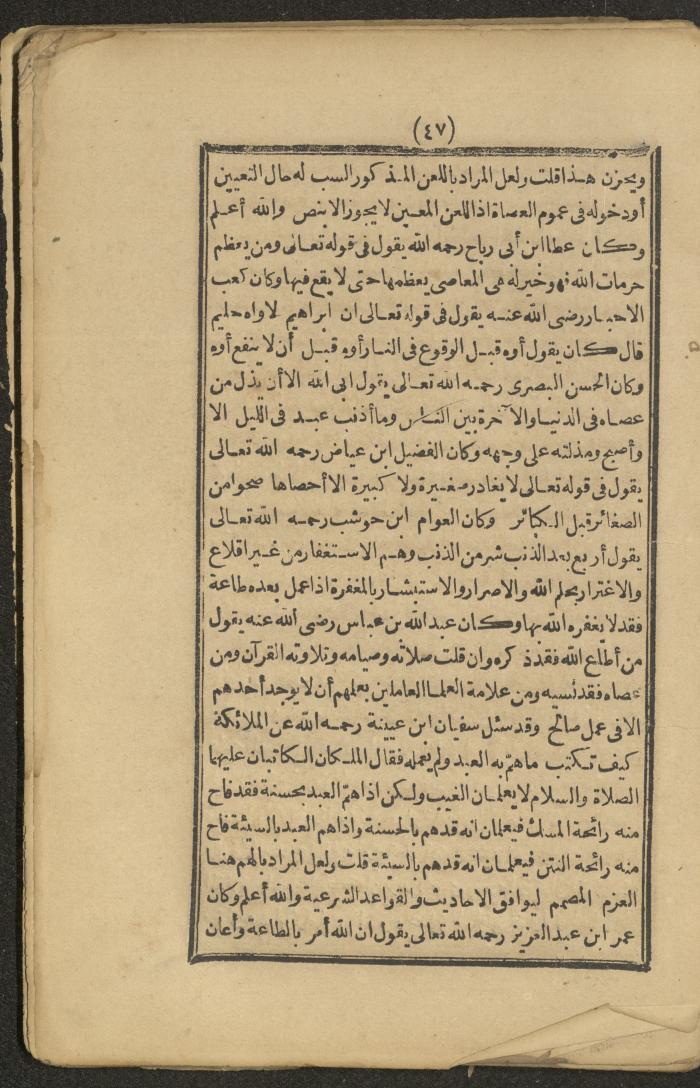 (٤٧)
ويحزن هذا قلت ولعل المراد باللعن المذكور السب له حال التعيين
أو دخوله في عموم العصاة اذ اللعن المعين لا يجوز الا بنص والله أعلم
وكان عطا ابن أبي رباح رحمه الله يقول في قوله تعالى ومن يعظم
حرمات الله فهو خير له هي المعاصي يعظمها حتى لا يقع فيها وكان كعب
الاحبار رضى الله عنه يقول في قوله تعالى ان ابراهيم لاواه حليم
قال كان يقول أوه قبل الوقوع في النار أوه قبل أن لا ينفع أوه
وكان الحسن البصرى رحمه الله تعالى يقول ابى الله الا أن يذل من
عصاه في الدنيا والآخرة بين الناس وما أذنب عبد في الليل الا
وأصبح ومذلته على وجهه وكان الفضيل ابن عياض رحمه الله تعالى
يقول في قوله تعالى لا يغادر صغيرة ولا كبيرة الا أحصاها ضجوا من
الصغائر قبل الكبائر وكان العوام ابن حوشب رحمه الله تعالى
يقول أربع بعد الذنب شر من الذنب وهم الاستغفار من غير اقلاع
والاغترار بحلم الله والاصرار والاستبشار بالمغفرة اذا عمل بعده طاعة
فقد لا يغفره الله بها وكان عبد الله بن عباس رضى الله عنه يقول
من أطاع الله فقد ذكره وان قلت صلاته وصيامه وتلاوته القرآن ومن
عصاه فقد نسيه ومن علامة العلما العاملين بعلمهم أن لا يوجد أحدهم
الا فى عمل صالح وقد سئل سفيان ابن عيينة رحمه الله عن الملائكة
كيف تكتب ما هم به العبد ولم يعمله فقال الملكان الكاتبان عليهما
الصلاة والسلام لا يعلمان الغيب ولكن اذا هم العبد بحسنة فقد فاح
منه رائحة المسك فيعلمان انه قد هم بالحسنة واذا هم العبد بالسيئة فاح
منه رائحة النتن فيعلمان انه قد هم بالسيئة قلت ولعل المراد بالهم هنا
العزم المصمم ليوافق الاحاديث والقواعد الشرعية والله أعلم وكان
عمر ابن عبد العزيز رحمه الله تعالى يقول ان الله أمر بالطاعة وأعان